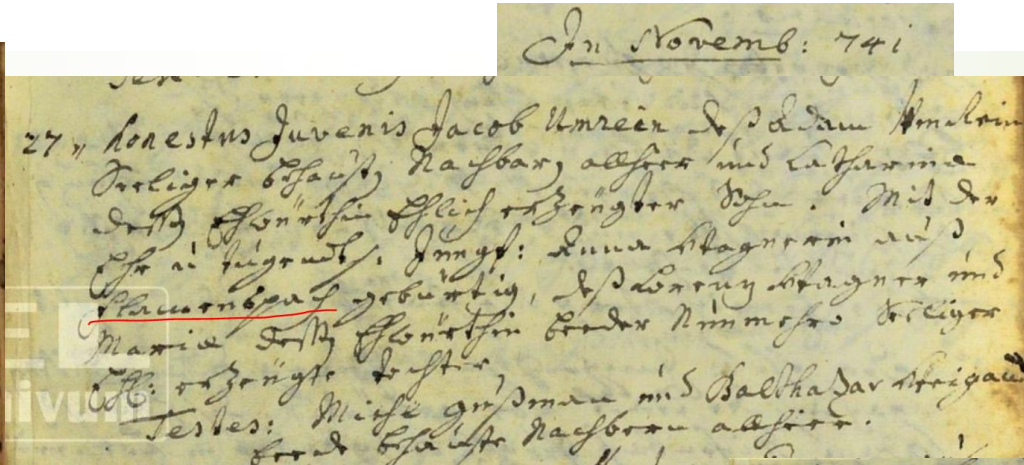 In Novemb: 741
27 Honestus Juvenis Jacob Umrein deß Adam Umrein
Seeliger behaust Nachbarn allhier und Catharina
deßen Ehwürthin Ehlich erzeugter Sohn. Mit der
Ehr u tugendts. Jungf: Anna Wagnerin auß
Flamenspach gebürtig, deß Lorenz Wagner und
Maria deßen Ehwürthin beeder Nunmehro Seeliger
Ehl: erzeugte tochter,
Testes: Michl gußman und Balthasar Weigand
beede behauste Nachbern allhier.